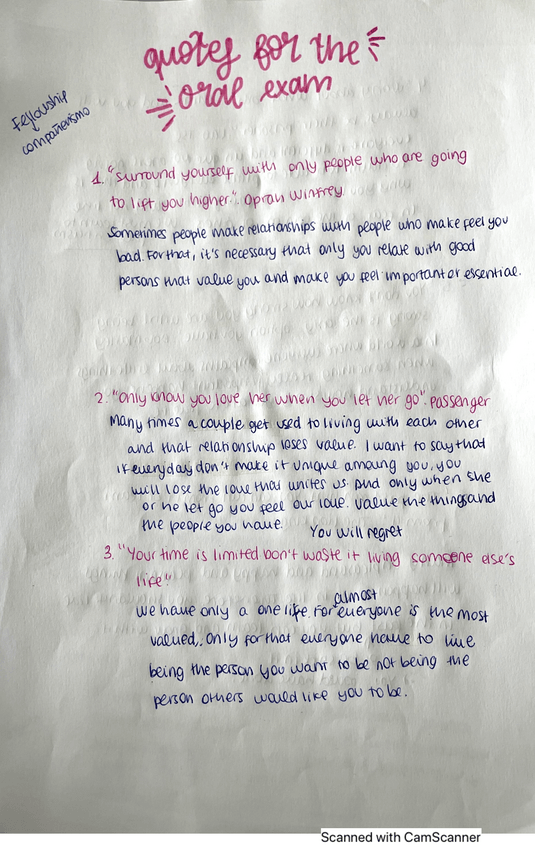 quotes for the
oral exam
Fellowship
compañerismo
1. "Surround yourself with only people who are going
to lift you higher". Oprah Winfrey.
Sometimes people make relationships with people who make feel you
bad. For that, it's necessary that only you relate with good
persons that value you and make you feel important or essential.
2. "Only know you love her when you let her go". Passenger
Many times a couple get used to living with each other
and that relationship loses value. I want to say that
if everyday don't make it unique amoung you, you
will lose the love that unites us. And only when she
or he let go you feel our love. Value the things and
the people you have. You will regret
3. "Your time is limited Don't waste it living someone else's
life"
We have only a one life. For almost everyone is the most
valued, only for that everyone have to live
being the person you want to be not being the
person others would like you to be.
Scanned with CamScanner